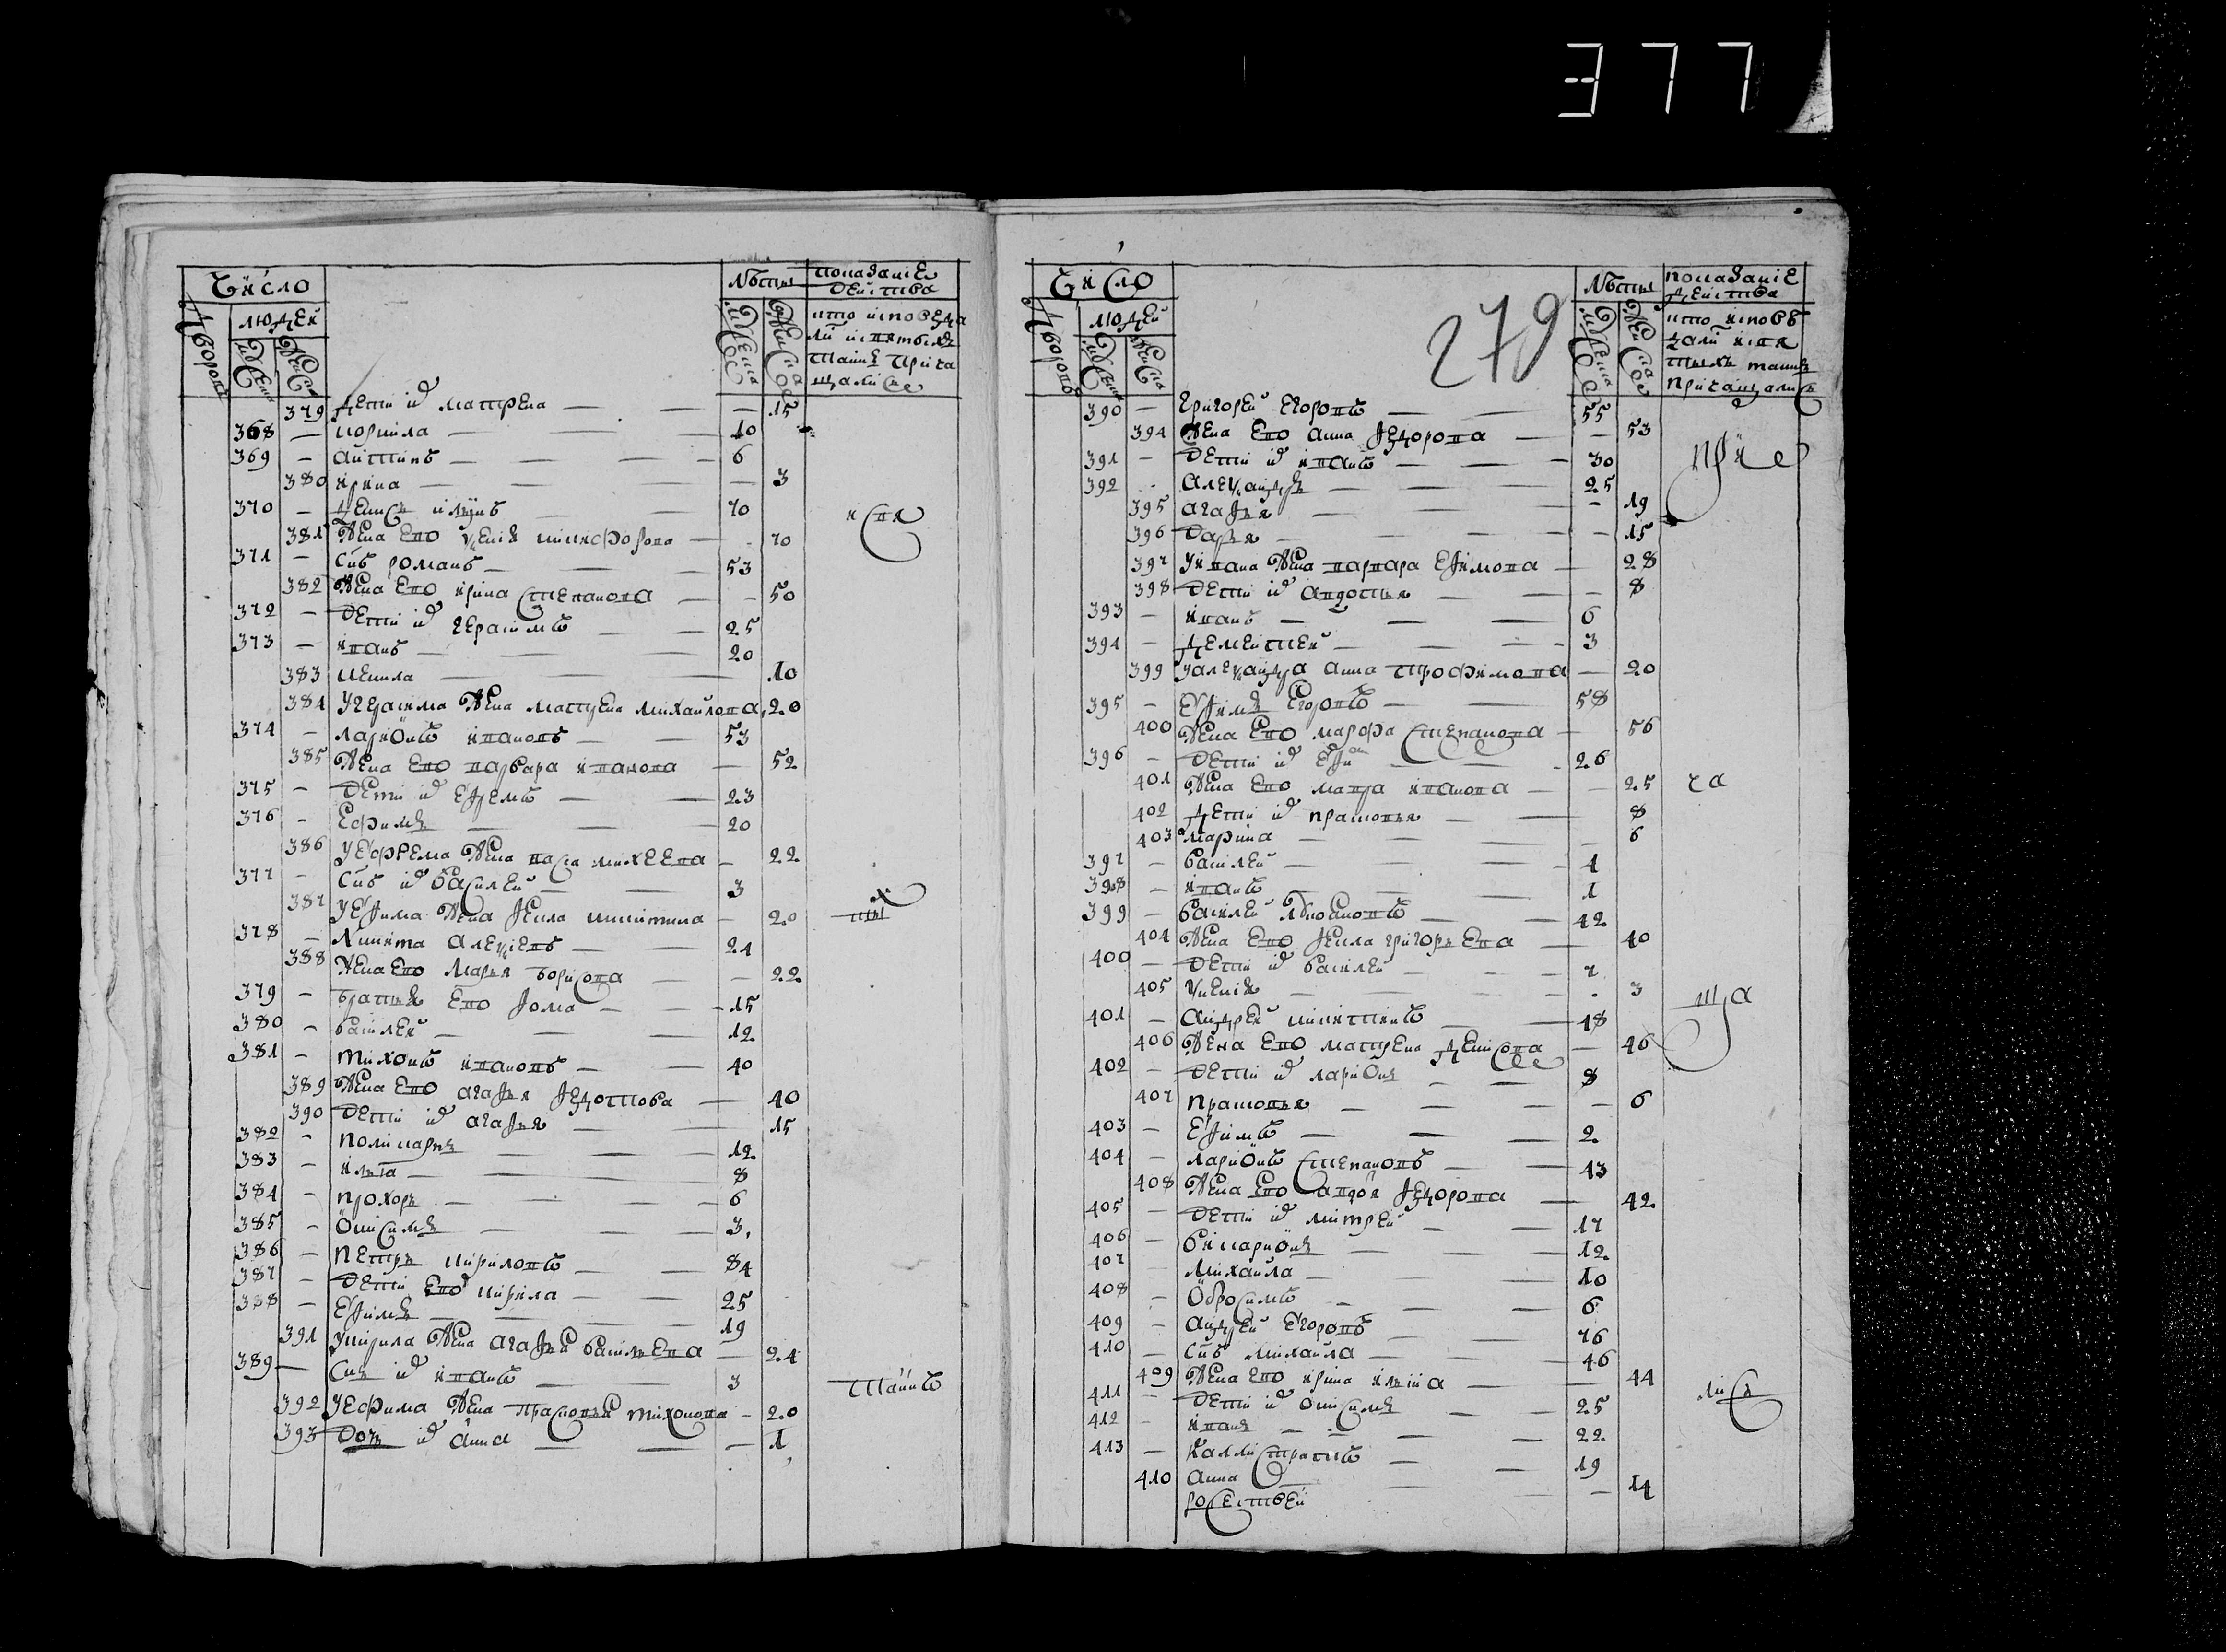 377
Число
Дворовъ
людей
мужеска
женска
лѣты
мужеска
женска
показаніе
действа
кто исповеда
ли и святыхъ
таинъ прича
щалися
379 дети их матрена — 15
368 — корнила — 10
369 — антипъ — 6
380 ирина — 3
370 — денисъ — 70
381 жена ево никифорова — 70
371 — снъ романъ — 53
382 жена ево ирина степанова — 50
372 — дети их герасимъ — 25
373 — иванъ — 20
383 — 10
384 У герасима жена матрена михайлова 20
374 — ларионъ ивановъ — 53
385 жена ево варвара иванова — 52
375 — дети их ефремъ — 23
376 — ефимъ — 20
386 У ефрема жена михеева — 22
377 — снъ их василей — 3
387 У ефима жена фекла никитина — 20
378 — никита — 24
388 жена ево марья борисова — 22
379 — братья ево фома — 15
380 — василей — 12
381 — тихонъ ивановъ — 40
389 жена ево агафья федотова — 40
390 дети их агафья — 15
382 — поликарпъ — 12
383 — илья — 8
384 — прохоръ — 6
385 — онисимъ — 3
386 — петръ кириловъ — 84
387 — дети ево кирила — 25
388 — ефимъ — 19
391 У кирила жена агафья васильева — 24
389 — снъ их иванъ — 3
392 У ефима жена прасковья тихонова — 20
393 дочь их анна — 1
и свя
ты
х
таинъ
279
Число
Дворовъ
людей
мужеска
женска
лѣты
мужеска
женска
показаніе
действа
кто исповѣ
дали и свя
тыхъ таинъ
причащались
390 — григорей егоровъ — 55
394 жена ево анна федорова — 53
391 — дети их иванъ — 30
392 — александръ — 25
395 агафья — 19
396 дарья — 15
397 У ивана жена варвара ефимова — 28
398 дети их авдотья — 8
393 — иванъ — 6
394 — дементей — 3
399 У александра анна трофимова — 20
395 — ефимъ егоровъ — 58
400 жена ево марфа степанова — 56
396 — дети их — 26
401 жена ево мавра иванова — 25
402 дети их прасковья — 8
403 марина — 6
397 — василей — 4
398 — иванъ — 1
399 — василей — 42
404 жена ево фекла григорьева — 40
400 — дети их василей — 7
405 ксения — 3
401 — андрей никитинъ — 48
406 жена ево матрена денисова — 46
402 — дети их ларионъ — 8
407 прасковья — 6
403 — ефимъ — 2
404 — ларионъ степановъ — 43
408 жена ево авдотя федорова — 42
405 — дети их митрей — 17
406 — иларионъ — 12
407 — михаила — 10
408 — обросимъ — 6
409 — андрей егоровъ — 76
410 — снъ михаила — 46
409 жена ево ирина ильина — 44
411 — дети их онисимъ — 25
412 — иванъ — 22
413 — каллистратъ — 19
410 анна — 14
при
ча
ща
лись